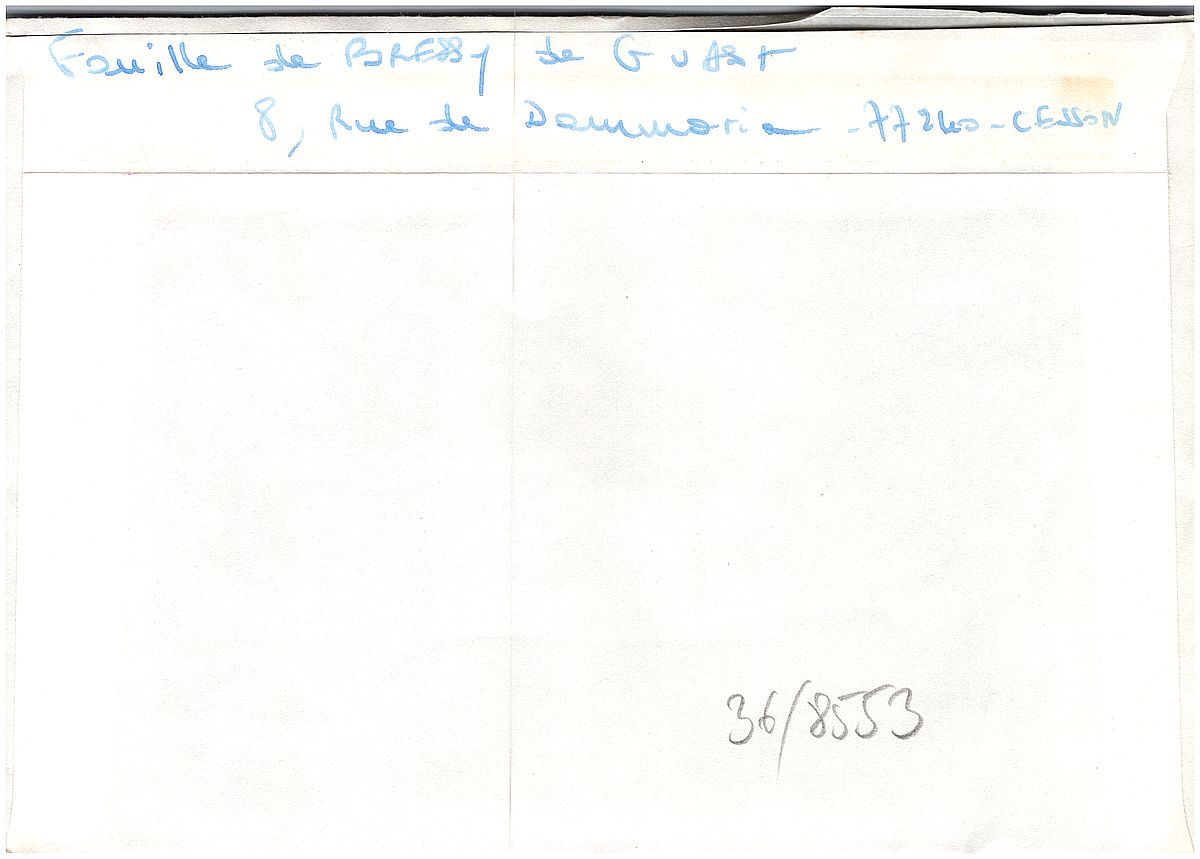 Famille de BRESSY de GUAST
8, Rue de Dammarie - 77240 - CESSON
36/8553